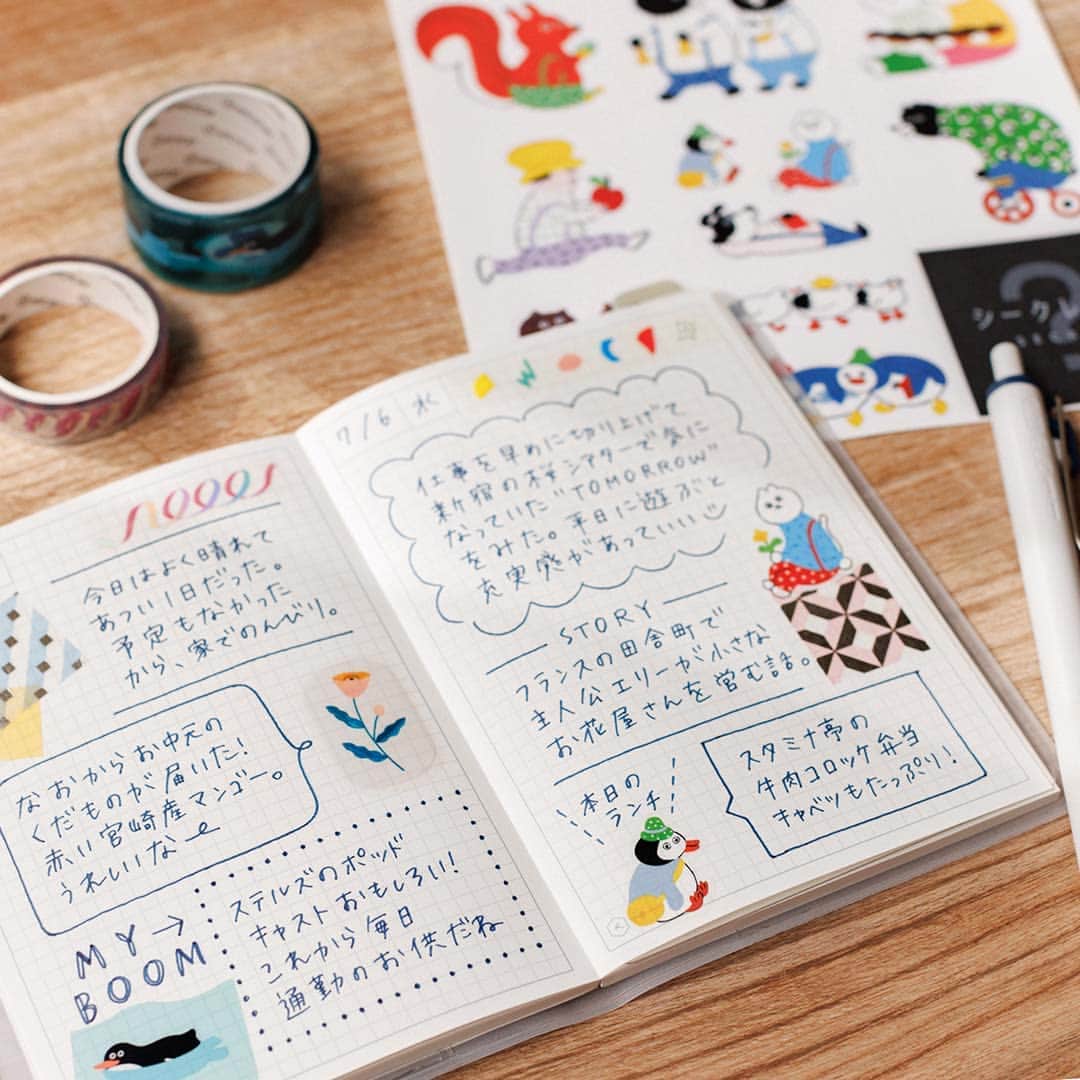 今日はよく晴れて
あつい1日だった。
予定もなかった
から、家でのんびり。
なおからお中元の
くだものが届いた!
赤い宮崎産マンゴー。
うれしいな
MY→
BOOM
ステルズのポッド
キャストおもしろい!
これから毎日
通勤のお供だね
7/6 水
仕事を早めに切り上げて
新宿の桜シアターで気に
なっていた"TOMORROW"
をみた。平日に遊ぶと
充実感があっていい
STORY
フランスの田舎町で
主人公エリーが小さな
お花屋さんを営む話。
本日の
ランチ!
スタミナ亭の
牛肉コロッケ弁当
キャベツもたっぷり!
シークレ